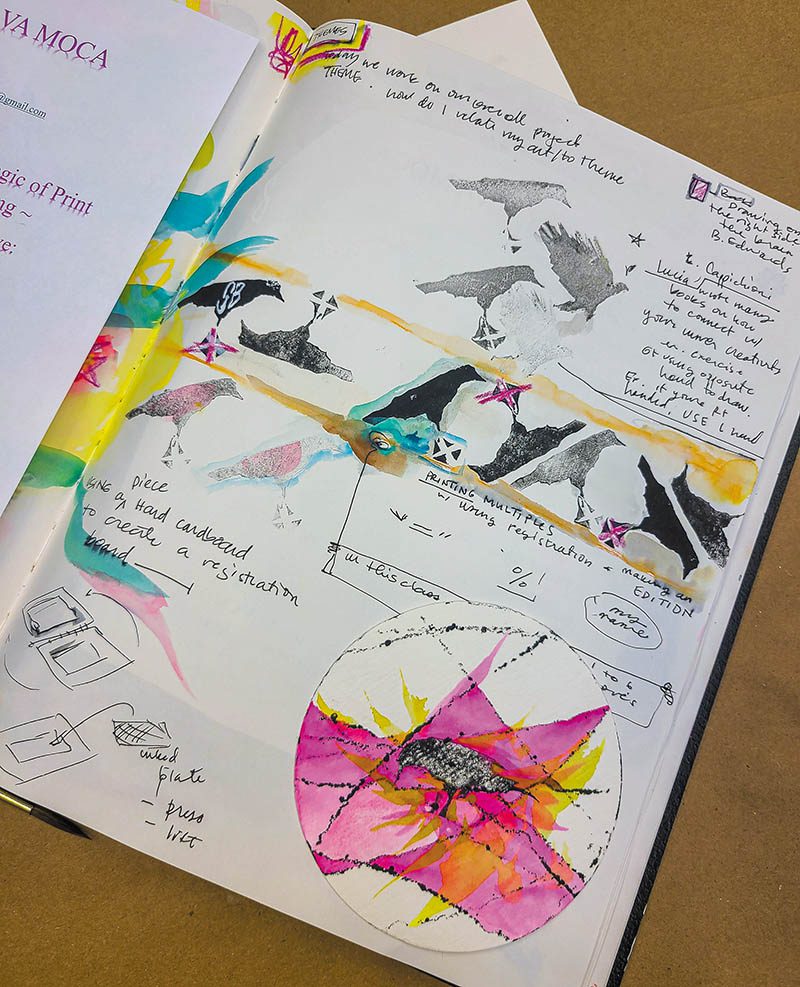 VA MOCA
@gmail.com
gic of Print
ng ~
e:
THEMES
today we work on our overall project
THEME. how do I relate my art/to theme
Book
Drawing on
the right side
the brain
B. Edwards
L. Capichioni
Lucia, wrote many
books on how
to connect w/
your inner creativity
ex. exercise
of using opposite
hand to draw.
Ex. if your Rt
handed USE L hand
SB
PRINTING MULTIPLES
w/ using registration + making an
EDITION
"="
%
in this class
my
name
1 to 6
USING a piece
Hard cardboard
to create a registration
board
inked
plate
- press
- lift